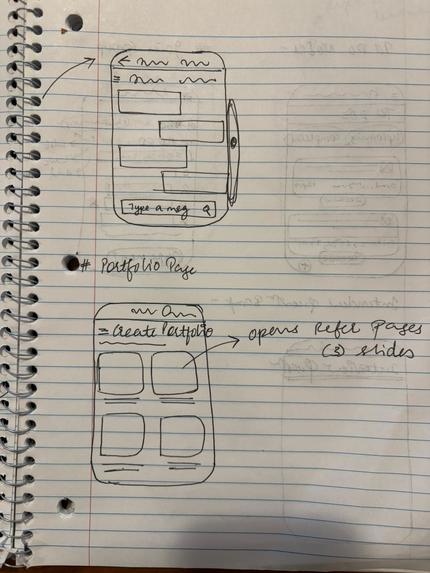 Type a msg
# Portfolio Page
= Create Portfolio
opens Refer Pages
(3) slides